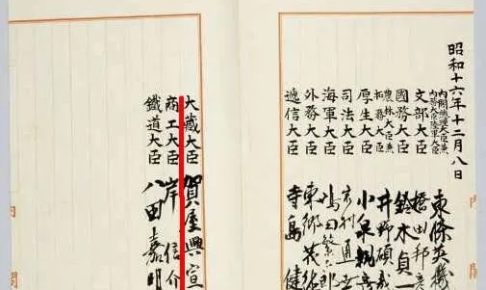 昭和十六年十二月八日
内閣總理大臣兼
内務大臣陸軍大臣 東條英機
文部大臣 橋田邦彦
國務大臣 鈴木貞一
農林大臣兼
拓務大臣 井野碩哉
厚生大臣 小泉親彦
司法大臣 岩村通世
海軍大臣 嶋田繁太郎
外務大臣 東郷茂徳
遞信大臣 寺島健
大藏大臣 賀屋興宣
商工大臣 岸信介
鐵道大臣 八田嘉明